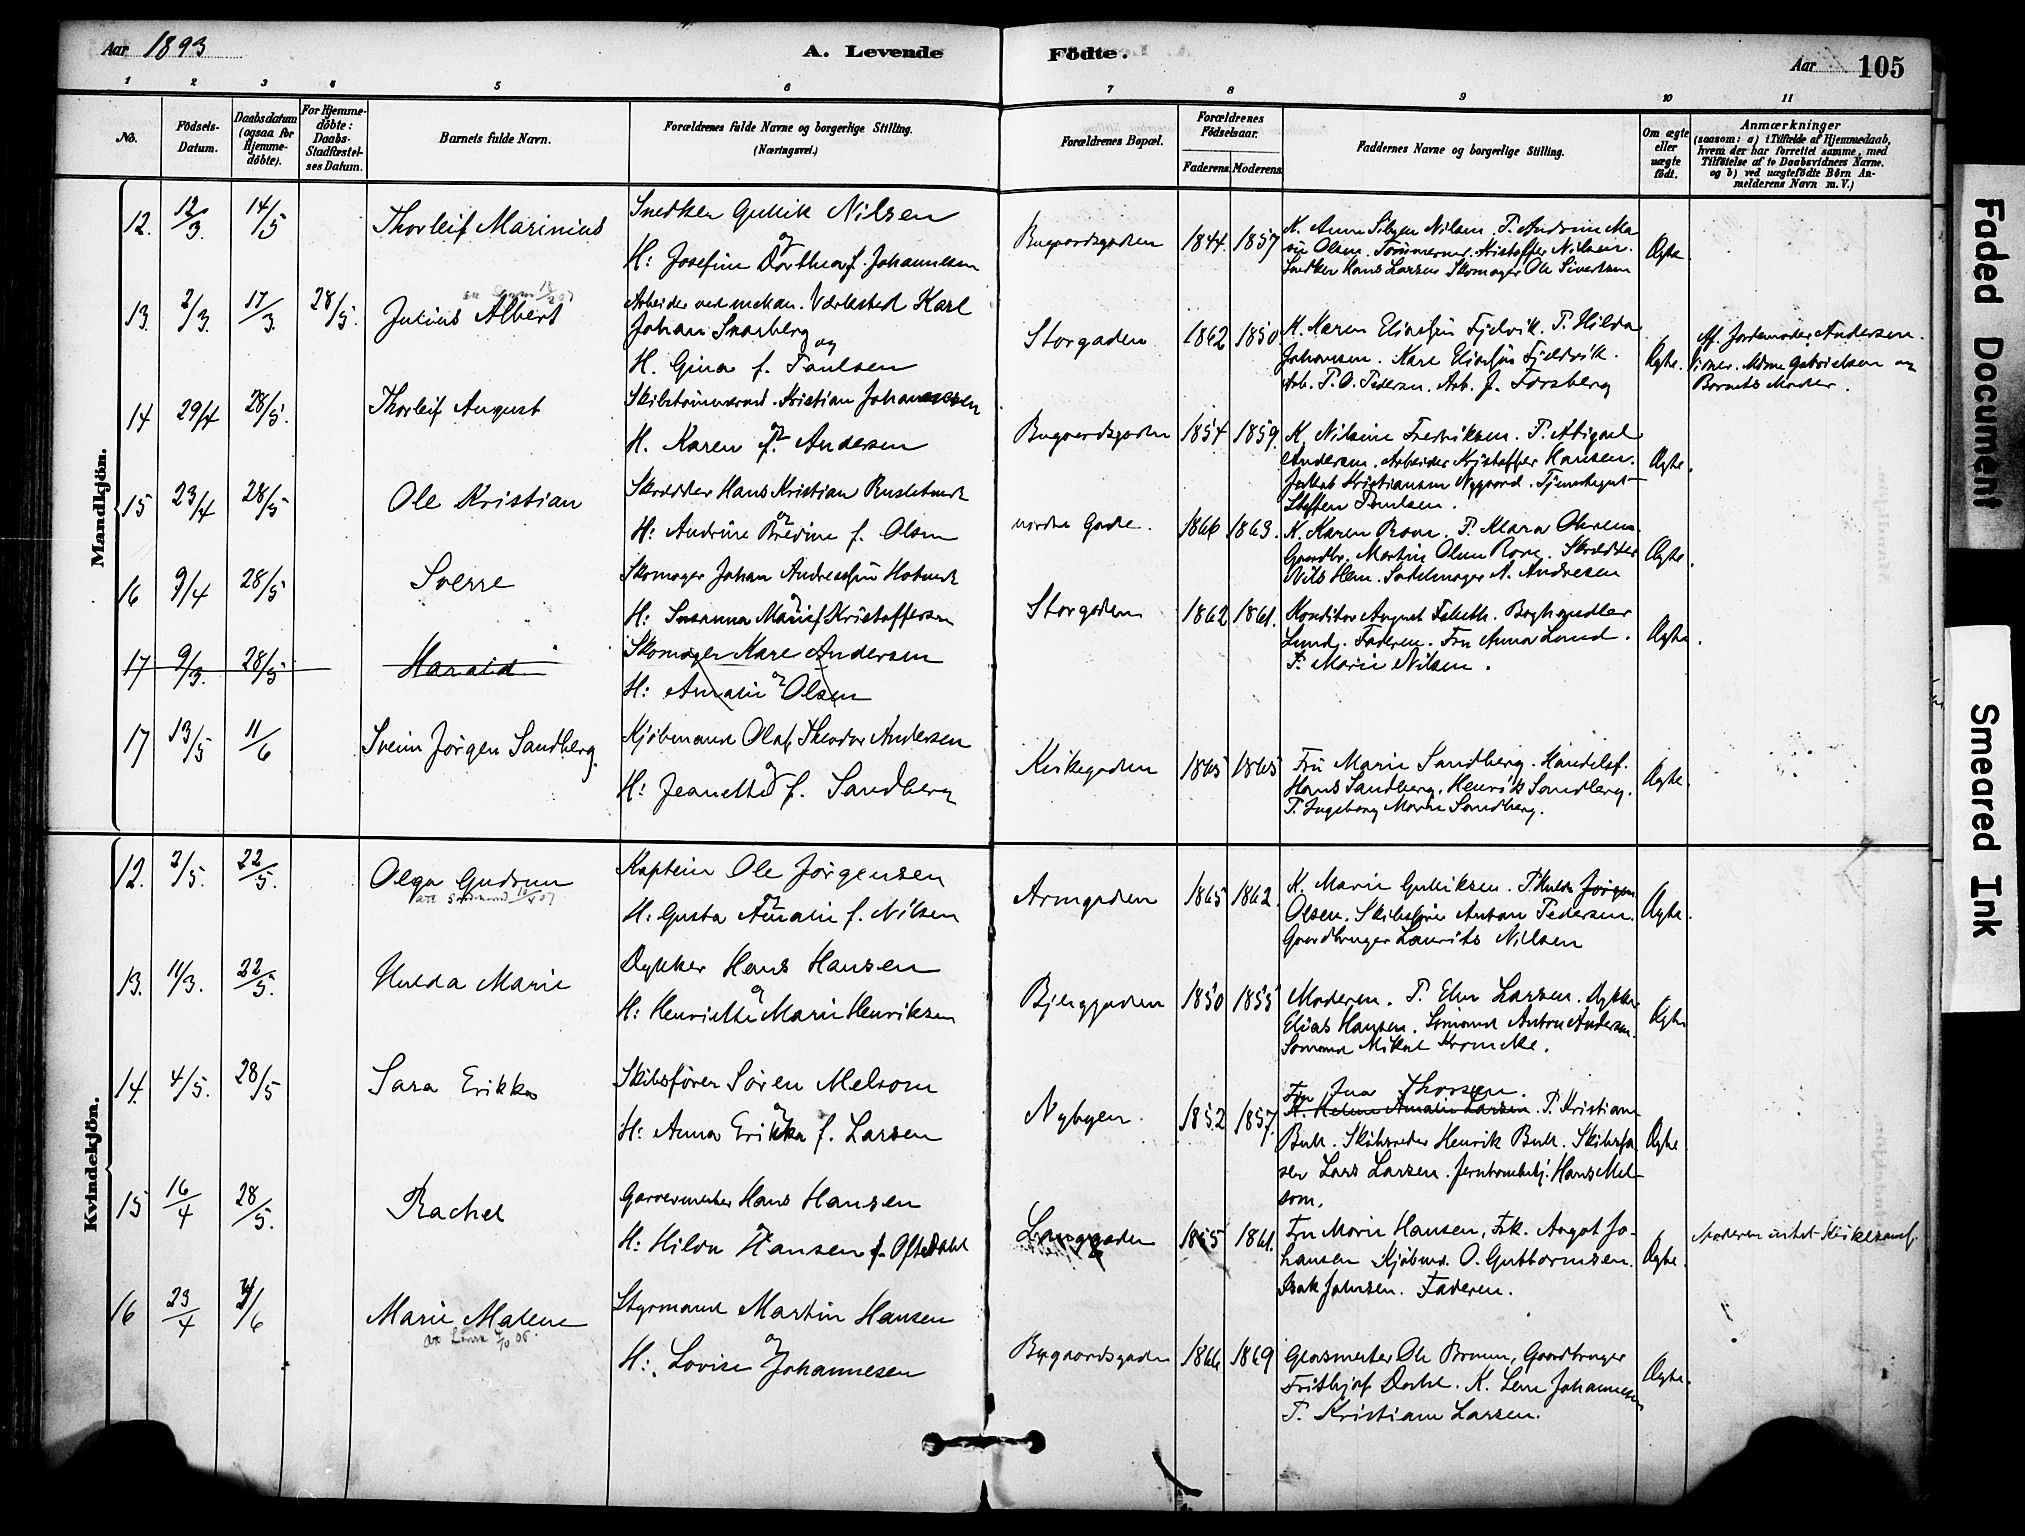 Aar 1893 A. Levende Födte. Aar 105
1 2 3 4 5 6 7 8 9 10 11
No. Födsels-Datum. Daabsdatum (ogsaa for Hjemme-döbte). For Hjemme-döbte: Daabs-Stadfæstel-ses Datum. Barnets fulde Navn. Forældrenes fulde Navne og borgerlige Stilling. (Næringsvei.) Forældrenes Bopæl. Forældrenes Födselsaar. Faderens Moderens Faddernes Navne og borgerlige Stilling. Om ægte eller uægte födt. Anmærkninger (saasom: a) i Tilfælde af Hjemmedaab, hvem der har forrettet samme, med Tilföielse af to Daabsvidners Navne, og b) ved uægtefödte Börn An-melderens Navn m. V.)
Mandkjön.
12. 12/3. 14/5 Thorleif Marinius Snedker Gullik Nilsen
og
H: Josefine Dorthea f. Johannesen
Bugaardsgaden 1844. 1857 K. Anne Nilsen. P. Andrine Ma-
rie Olsen. Tömmermd. Kristoffer Nilsen.
Snedker Hans Larsen Skomager Ole Sivertsen
Ægte.
13. 2/3. 17/3. 28/5. Julius Albert Arbeider ved mekan. Værksted Karl
Johan Snarberg
og
H. Gina f. Paulsen
Storgaden 1862 1850 K. Maren Eliassen Fjelvik. P. Hilda
Johansen. Karl Eliassen Fjeldvik.
Arb. P. O. Pedersen. Arb. J. Forsberg
Ægte. Af Jordemoder Andersen.
Vidner. Gabrielsen og
Barnets Moder.
14 29/4 28/5. Thorleif August Skibstömmermd. Kristian Johannesen
og
H. Karen f. Andersen
Bugaardsgaden 1854 1859. K. Nilsine Fredriksen. P. Abigael
Andersen. Arbeider Kristoffer Hansen.
Jakob Kristiansen Nygaard. Tjenestegut
Steffen Paulsen.
Ægte.
15 23/4 28/5 Ole Kristian Skrædder Hans Kristian
og
H: Andrine Bredine f. Olsen
nordre Gade. 1866 1863. K. Karen Rove. P. Klara
Gaardbr. Martin Olsen Rove. Skrædder
Nils Hem. Sadelmager A. Andresen
Ægte.
16 9/4 28/5 Sverre Skomager Johan Andreassen
og
H: Susanna Marie f. Kristoffersen
Storgaden 1862 1861. Konditor August. Boghandler
Lund. Faderen. Fru Anna Lund.
P. Marie Nilsen.
Ægte.
17 9/3. 28/5 Harald Skomager Karl Andersen
og
H: Amalie Olsen
17 13/5 11/6 Svein Jörgen Sandberg. Kjöbmand Olaf Theodor Andersen
og
H: Jeanette f. Sandberg
Kirkegaden 1865 1865 Fru Marie Sandberg. Handelsf.
Hans Sandberg. Henrik Sandberg.
P. Ingeborg Marie Sandberg.
Ægte.
Kvindekjön.
12. 2/5. 22/5. Olga Gudrun Kaptein Ole Jörgensen
og
H: Gusta Amalie f. Nilsen
Armgaden 1865 1862. K. Marie Gulliksen. P. Hulda Jörgen
Olsen. Skibsförer Anton Pedersen.
Gaardbruger Laurits Nilsen
Ægte.
13. 11/3. 22/5. Hulda Marie Dykker Hans Hansen
og
H: Henriette Marie Henriksen
Bjerggaden 1850 1855 Moderen. P. Elen Larsen. Dykker
Elias Hansen. Sömand Anton Andersen.
Sömand Mikal.
Ægte
14. 4/5. 28/5 Sara Erikka Skibsförer Sören Melsom
og
H: Anna Erikka f. Larsen
Nybyen. 1852 1857. Fru Ina Thorsen.
K. Helene Amalie Larsen. P. Kristiane
Bull. Skibsreder Henrik Bull. Skibsfö-
rer Lars Larsen. Hans Mel-
som.
Ægte
15 16/4 28/5. Rachel Garvermester Hans Hansen
og
H: Hilda Hansen f. Oftedahl
Langgaden 1855 1861. Fru Marie Hansen. Frk. Aagot Jo-
hansen Kjöbmd. O. Guttormsen.
Isak Johnsen. Faderen.
Ægte. Moderen
16 23/4 4/6 Marie Malene Styrmand Martin Hansen
og
H: Lovise Johannesen
Bugaardsgaden 1866 1869 Glasmester Ole Bruun, Gaardbruger
Frithjof. K. Lene Johannesen
P. Kristiane Larsen.
Ægte.
Faded Document
Smeared Ink